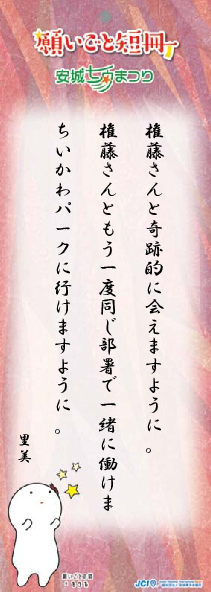 願いごと短冊
安城七夕まつり
権藤さんと奇跡的に会えますように。
権藤さんともう一度同じ部署で一緒に働けま
ちいかわパークに行けますように。
里美
願いごと短冊
JCI